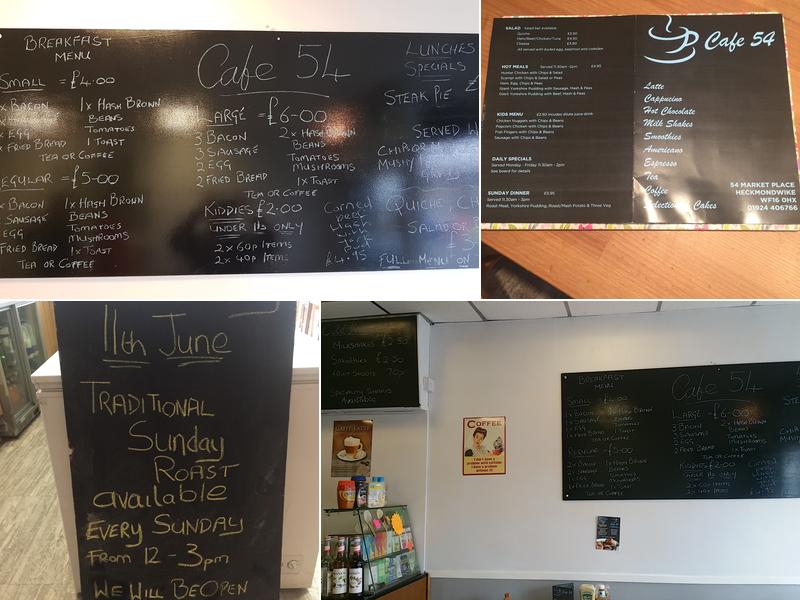 BREAKFAST
MENU
SMALL = £4.00
BACON
EGG
FRIED BREAD
1x HASH BROWN
BEANS
TOMATOES
1 TOAST
TEA OR COFFEE
REGULAR = £5-00
BACON
SAUSAGE
EGG
FRIED BREAD
1x HASH BROWN
BEANS
TOMATOES
MUSHROOMS
1x TOAST
TEA OR COFFEE
Cafe 54
LARGE = £6-00
3 BACON
3 SAUSAGE
2 EGG
2 FRIED BREAD
2x HASH BROWN
BEANS
TOMATOES
MUSHROOMS
1x TOAST
TEA OR COFFEE
KIDDIES £2.00
UNDER 11s ONLY
2 x 60p ITEMS
2 x 40p ITEMS
Corned
beef
Hash
£4.95
LUNCHES
SPECIALS
STEAK PIE
SERVED
QUICHE, CH
SALAD OR
FULL MENU ON
SALAD Salad bar available
Quiche £3.50
Ham/Beef/Chicken/Tuna £4.50
Cheese £3.80
All served with duded egg, beetroot and coleslaw
HOT MEALS Served 11.30am -2pm £4.95
Hunter Chicken with Chips & Salad
Scampi with Chips & Salad or Peas
Ham, Egg, Chips & Peas
Giant Yorkshire Pudding with Sausage, Mash & Peas
Giant Yorkshire Pudding with Beef, Mash & Peas
KIDS MENU £2.50 includes dilute juice drink
Chicken Nuggets with Chips & Beans
Popcorn Chicken with Chips & Beans
Fish Fingers with Chips & Beans
Sausage with Chips & Beans
DAILY SPECIALS
Served Monday - Friday 11.30am - 2pm
See board for details
SUNDAY DINNER £5.95
Served 11.30am - 3pm
Roast Meat, Yorkshire Pudding, Roast/Mash Potato & Three Veg
Cafe 54
Latte
Cappucino
Hot Chocolate
Milk Shakes
Smoothies
Americano
Espresso
Tea
Coffee
Cakes
54 MARKET PLACE
HECKMONDWIKE
WF16 0HX
01924 406766
11th JUNE
TRADITIONAL
Sunday
ROAST
available
EVERY SUNDAY
FROM 12 - 3pm
WE WILL BE OPEN
MILKSHAKES £2.50
Smoothies £2.50
Fruit Shoots 70p
AVAILABLE
CAFFE LATTE
COFFEE
I don't have a
problem with caffeine
I have a problem
without it!
BREAKFAST
MENU
Cafe 54
SMALL = £4.00
TEA OR COFFEE
REGULAR = £5.00
TEA OR COFFEE
LARGE = £6-00
3 BACON
3 SAUSAGE
2 EGG
2 FRIED BREAD
2x HASH BROWN
BEANS
TOMATOES
MUSHROOMS
1x TOAST
TEA OR COFFEE
KIDDIES £2.00
UNDER 11s ONLY
2 x 60p ITEMS
2 x 40p ITEMS